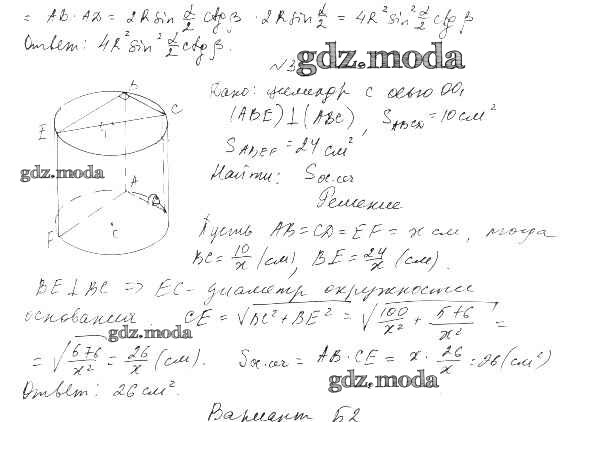 = AB·AD = 2R sin α/2 ctg β · 2R sin α/2 = 4R² sin² α/2 ctg β
Ответ: 4R² sin² α/2 ctg β.
№3
gdz.moda
Дано: цилиндр с осью OO₁
(ABE)⊥(ABC), S_ABCD = 10 см²
S_ABEF = 24 см²
Найти: S ос.сеч
Решение
B
C
E
A
D
F
C
gdz.moda
Пусть AB = CD = EF = x см, тогда
BC = 10/x (см), BE = 24/x (см).
BE⊥BC => EC - диаметр окружности
основания. CE = √BC² + BE² = √100/x² + 576/x² =
gdz.moda
= √676/x² = 26/x (см). S ос.сеч = AB·CE = x · 26/x = 26 (см²)
gdz.moda
Ответ: 26 см².
Вариант Б2